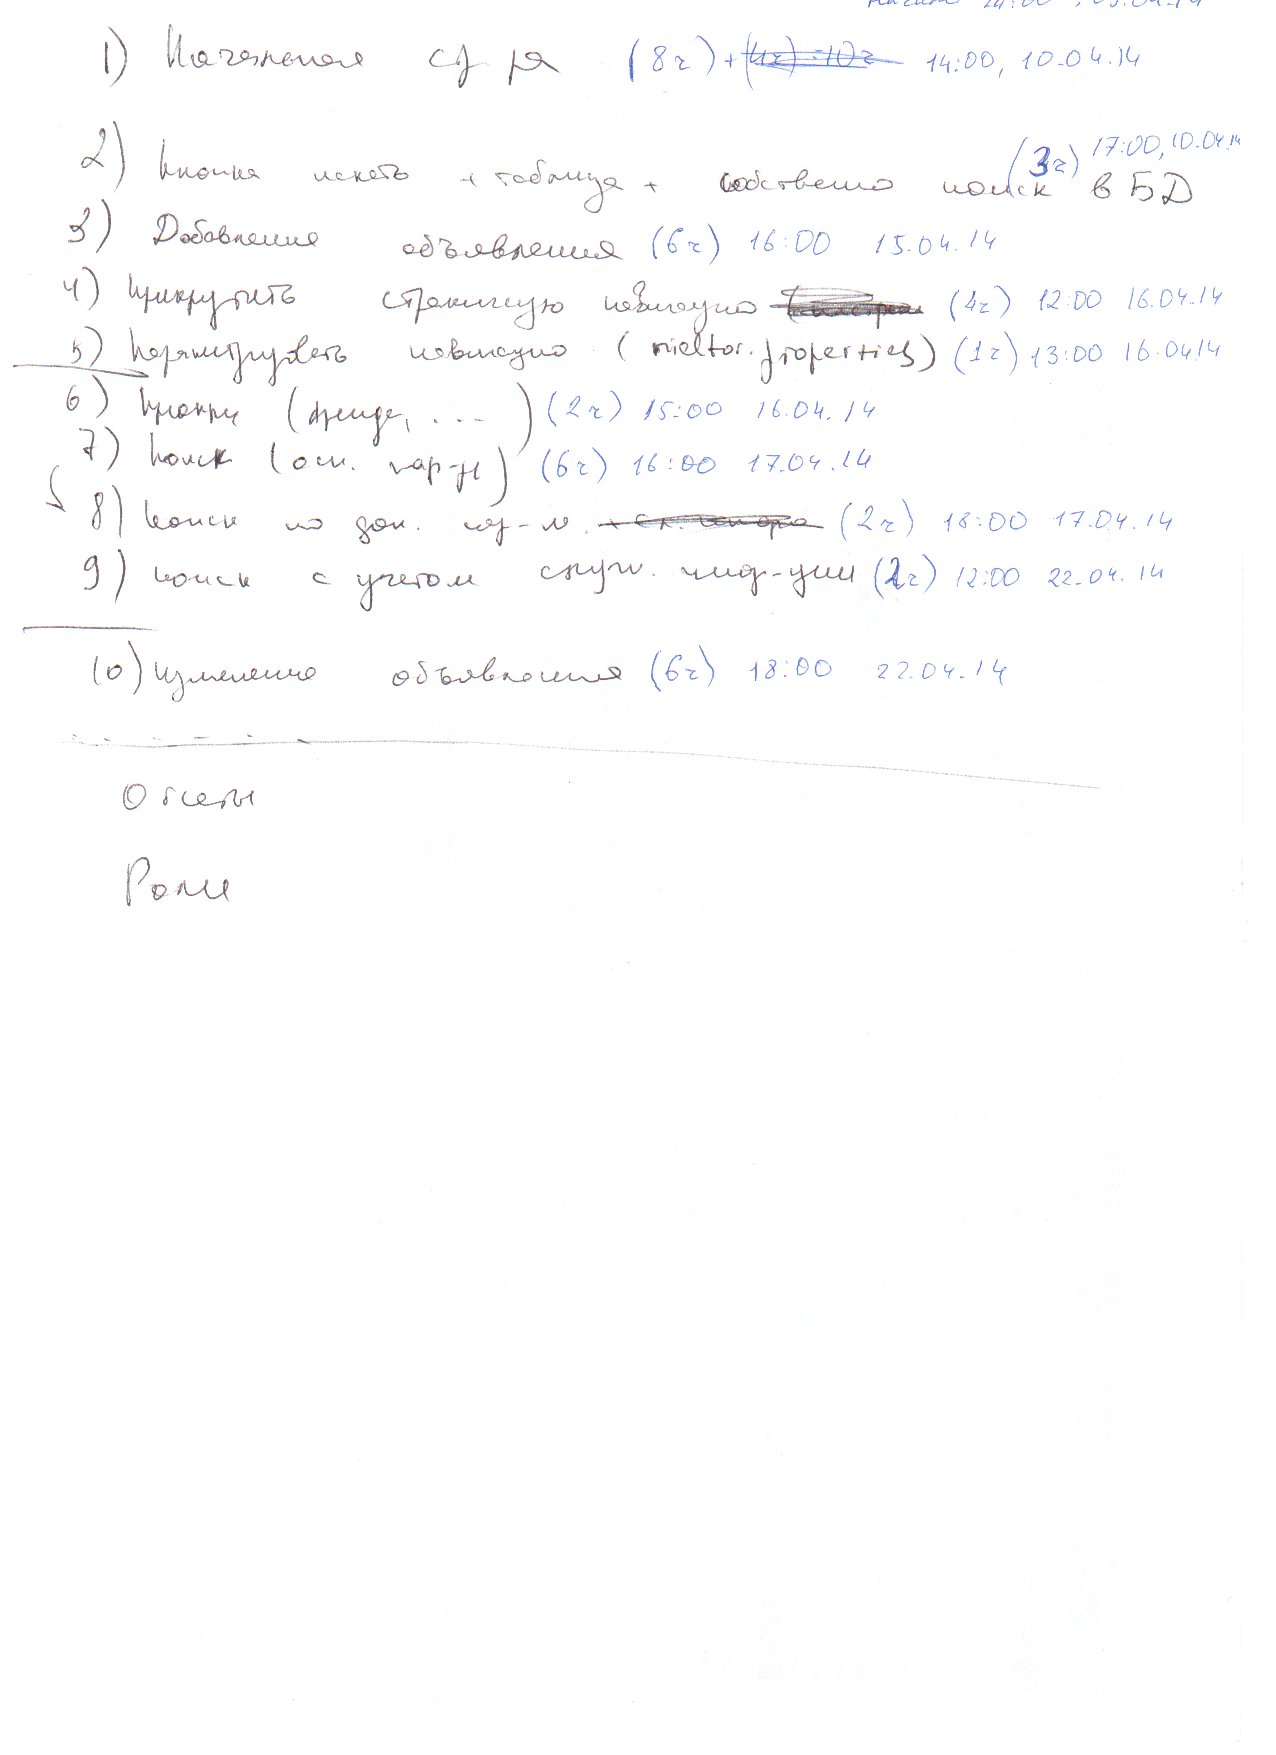 14:00, 09.04.14
1) Начальная стр-ца (8ч) + (4ч) 14:00, 10.04.14
2) Кнопка искать + таблица + собственно поиск в БД (3ч) 17:00, 10.04.14
3) Добавление объявления (6ч) 16:00 15.04.14
4) Прикрутить страничную навигацию (4ч) 12:00 16.04.14
5) навигацию (rieltor.properties) (1ч) 13:00 16.04.14
6) (аренда, ...) (2ч) 15:00 16.04.14
7) Поиск (осн. пар-ы) (6ч) 16:00 17.04.14
8) Поиск по доп. пар-м. (2ч) 18:00 17.04.14
9) поиск с учетом служ. инф-ции (2ч) 12:00 22.04.14
10) Изменение объявления (6ч) 18:00 22.04.14
Отчеты
Роли